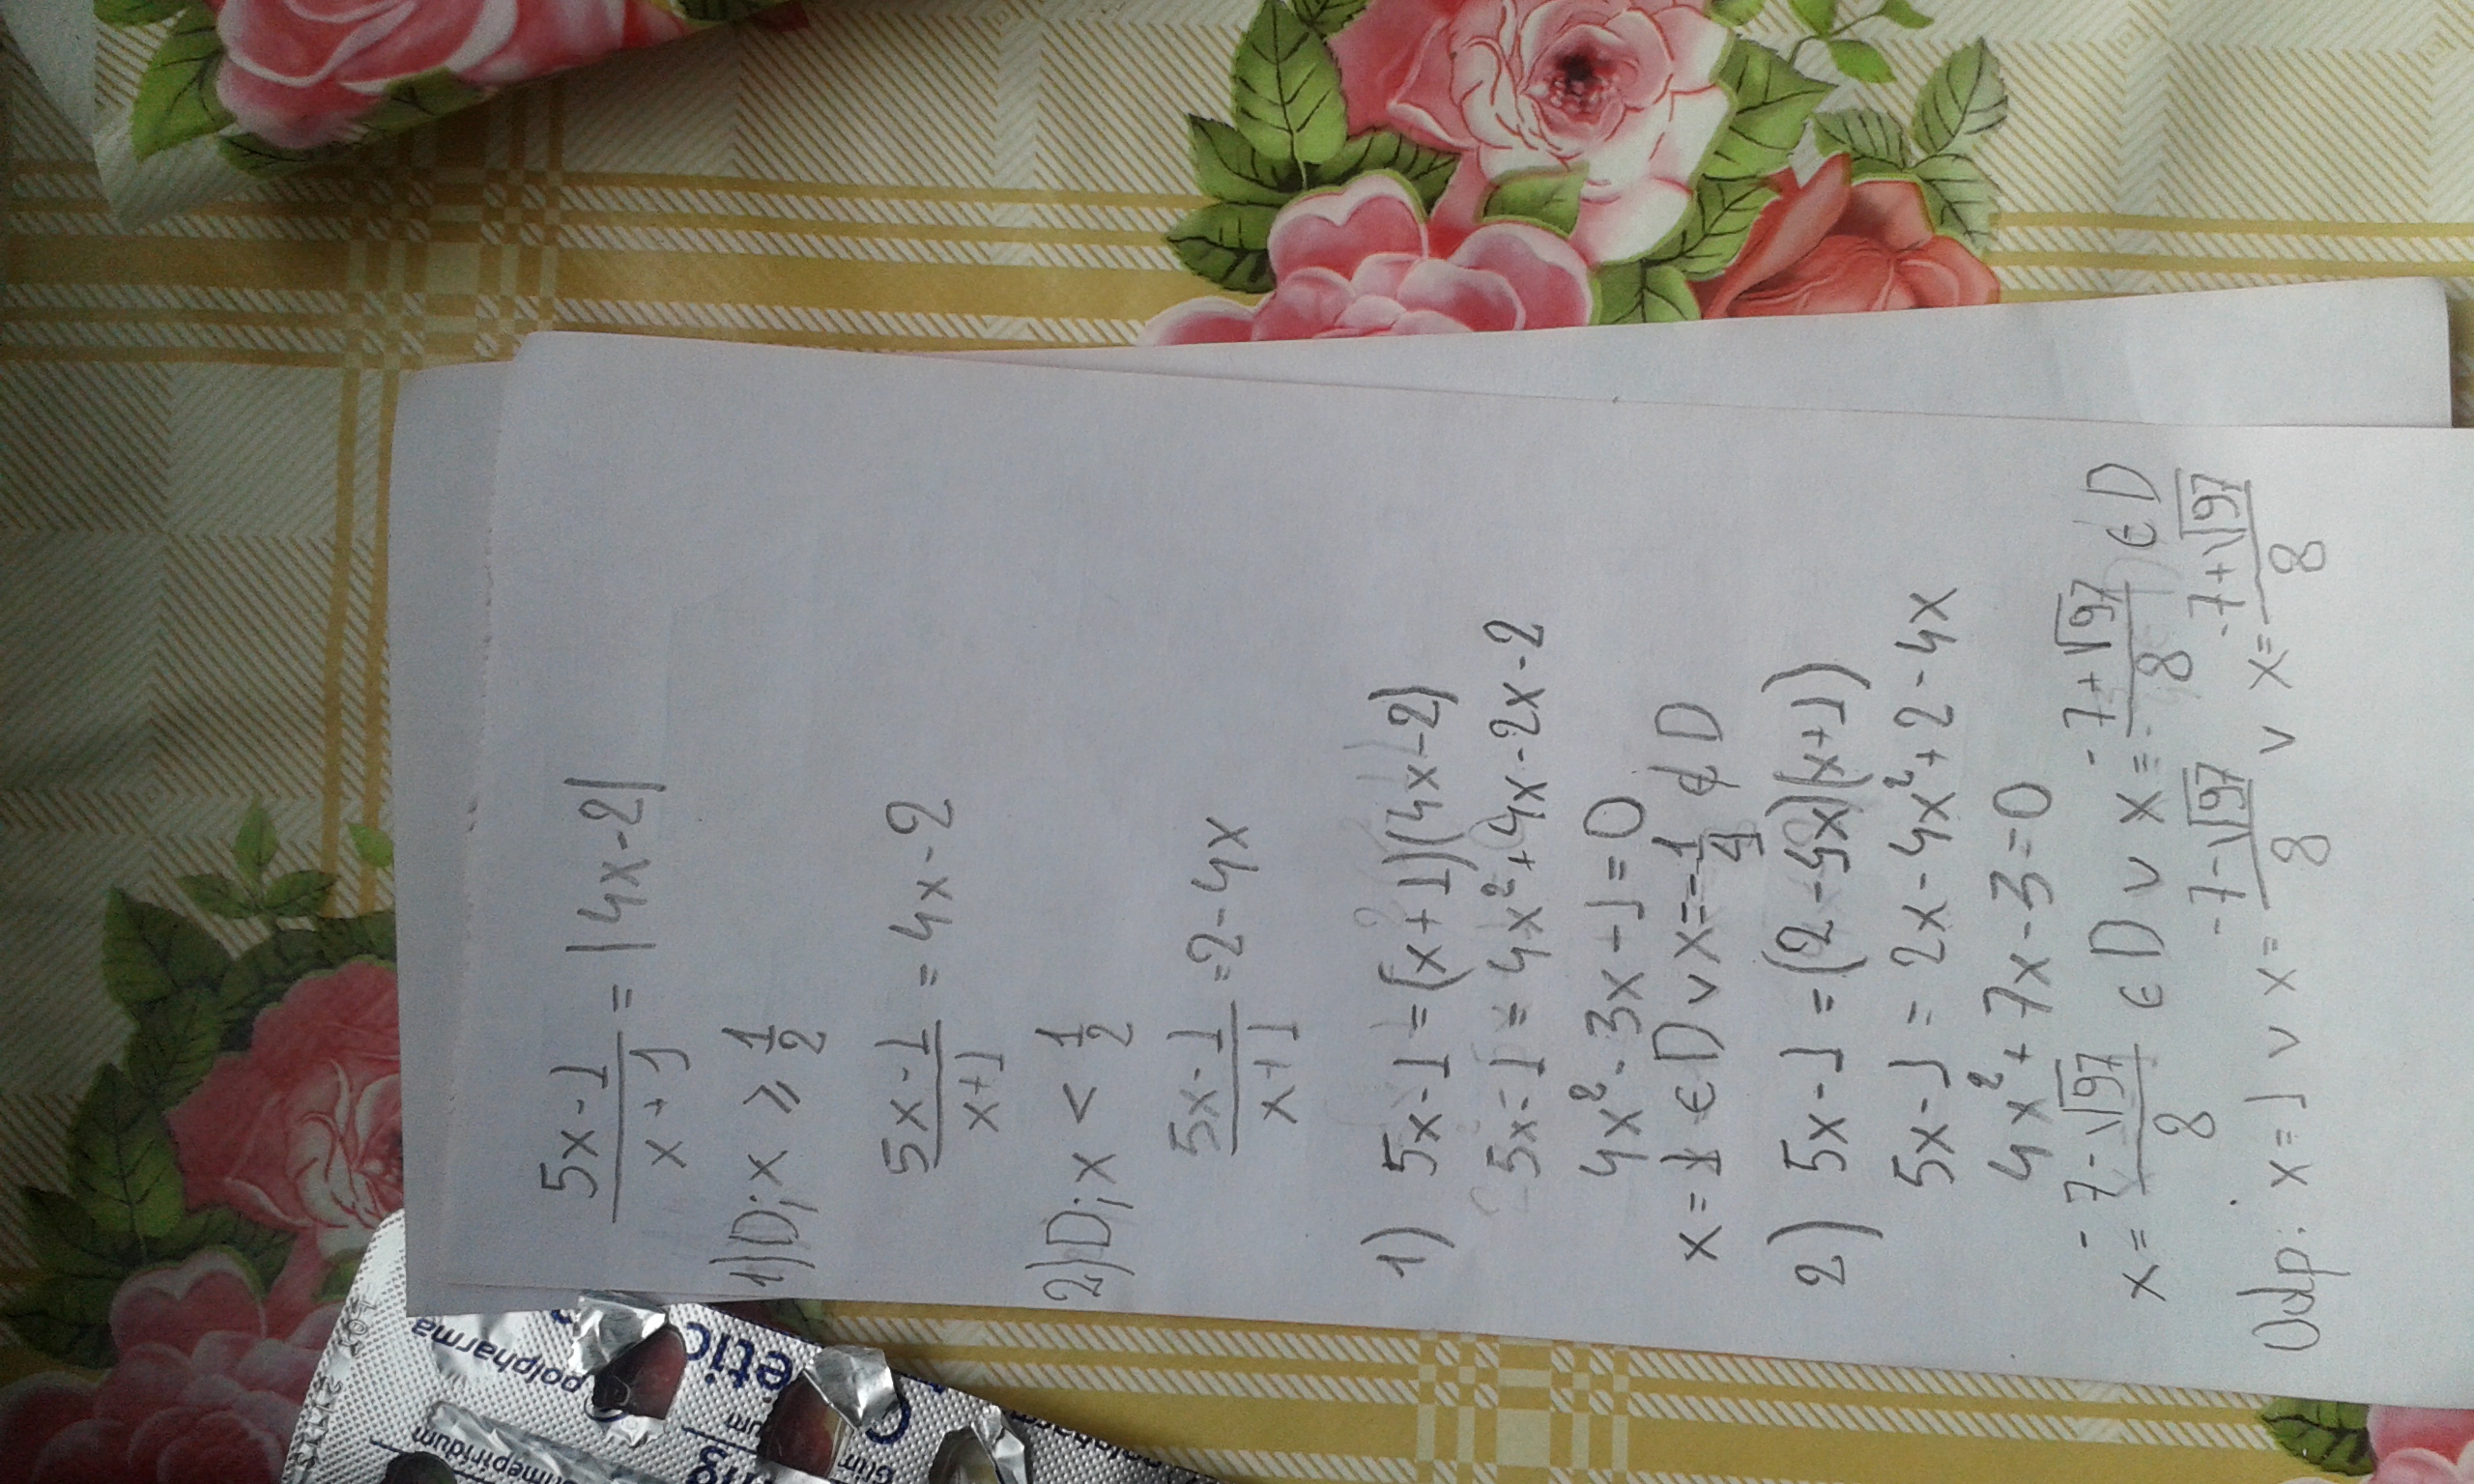 5x-1/x+1 = |4x-2|
1) D; x ≥ 1/2
5x-1/x+1 = 4x-2
2) D; x < 1/2
5x-1/x+1 = 2-4x
1) 5x-1 = (x+1)(4x-2)
5x-1 = 4x²+4x-2x-2
4x²-3x-1=0
x=1 ∈ D ∨ x=-1/4 ∉ D
2) 5x-1 = (2-4x)(x+1)
5x-1 = 2x-4x²+2-4x
4x²+7x-3=0
x = -7-√97/8 ∈ D ∨ x = -7+√97/8 ∈ D
Odp: x=1 ∨ x = -7-√97/8 ∨ x = -7+√97/8
polpharma
etic